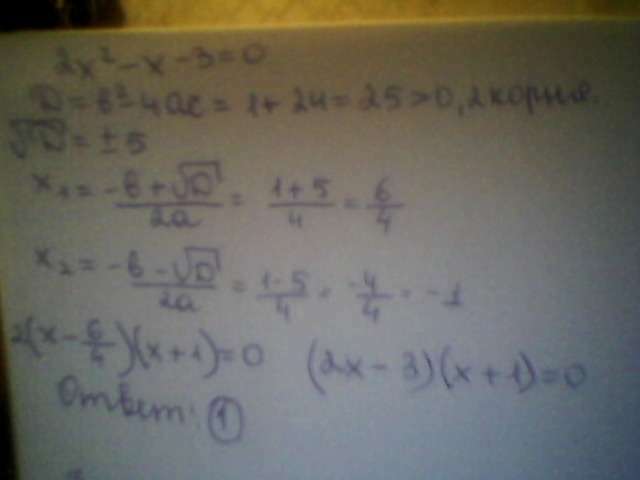 2x² - x - 3 = 0
D = b² - 4ac = 1 + 24 = 25 > 0, 2 корня.
√D = ± 5
x₁ = (-b + √D)/2a = (1 + 5)/4 = 6/4
x₂ = (-b - √D)/2a = (1 - 5)/4 = -4/4 = -1
2(x - 6/4)(x + 1) = 0 (2x - 3)(x + 1) = 0
Ответ: 1